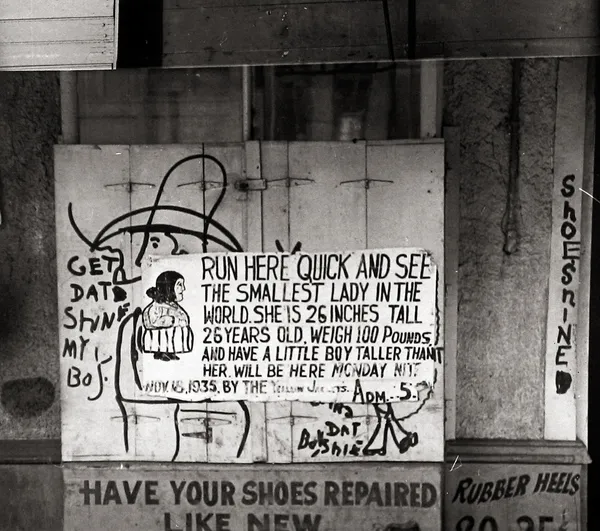 GET
DAT
SHINE
MY
BOS
RUN HERE QUICK AND SEE
THE SMALLEST LADY IN THE
WORLD. SHE IS 26 INCHES TALL
26 YEARS OLD. WEIGH 100 POUNDS
AND HAVE A LITTLE BOY TALLER THAN
HER. WILL BE HERE MONDAY NIT
NOV. 18, 1935. BY THE YELLOW JACKETS. ADM. 5
DAT
ShOESHINED
HAVE YOUR SHOES REPAIRED
LIKE NEW
RUBBER HEELS